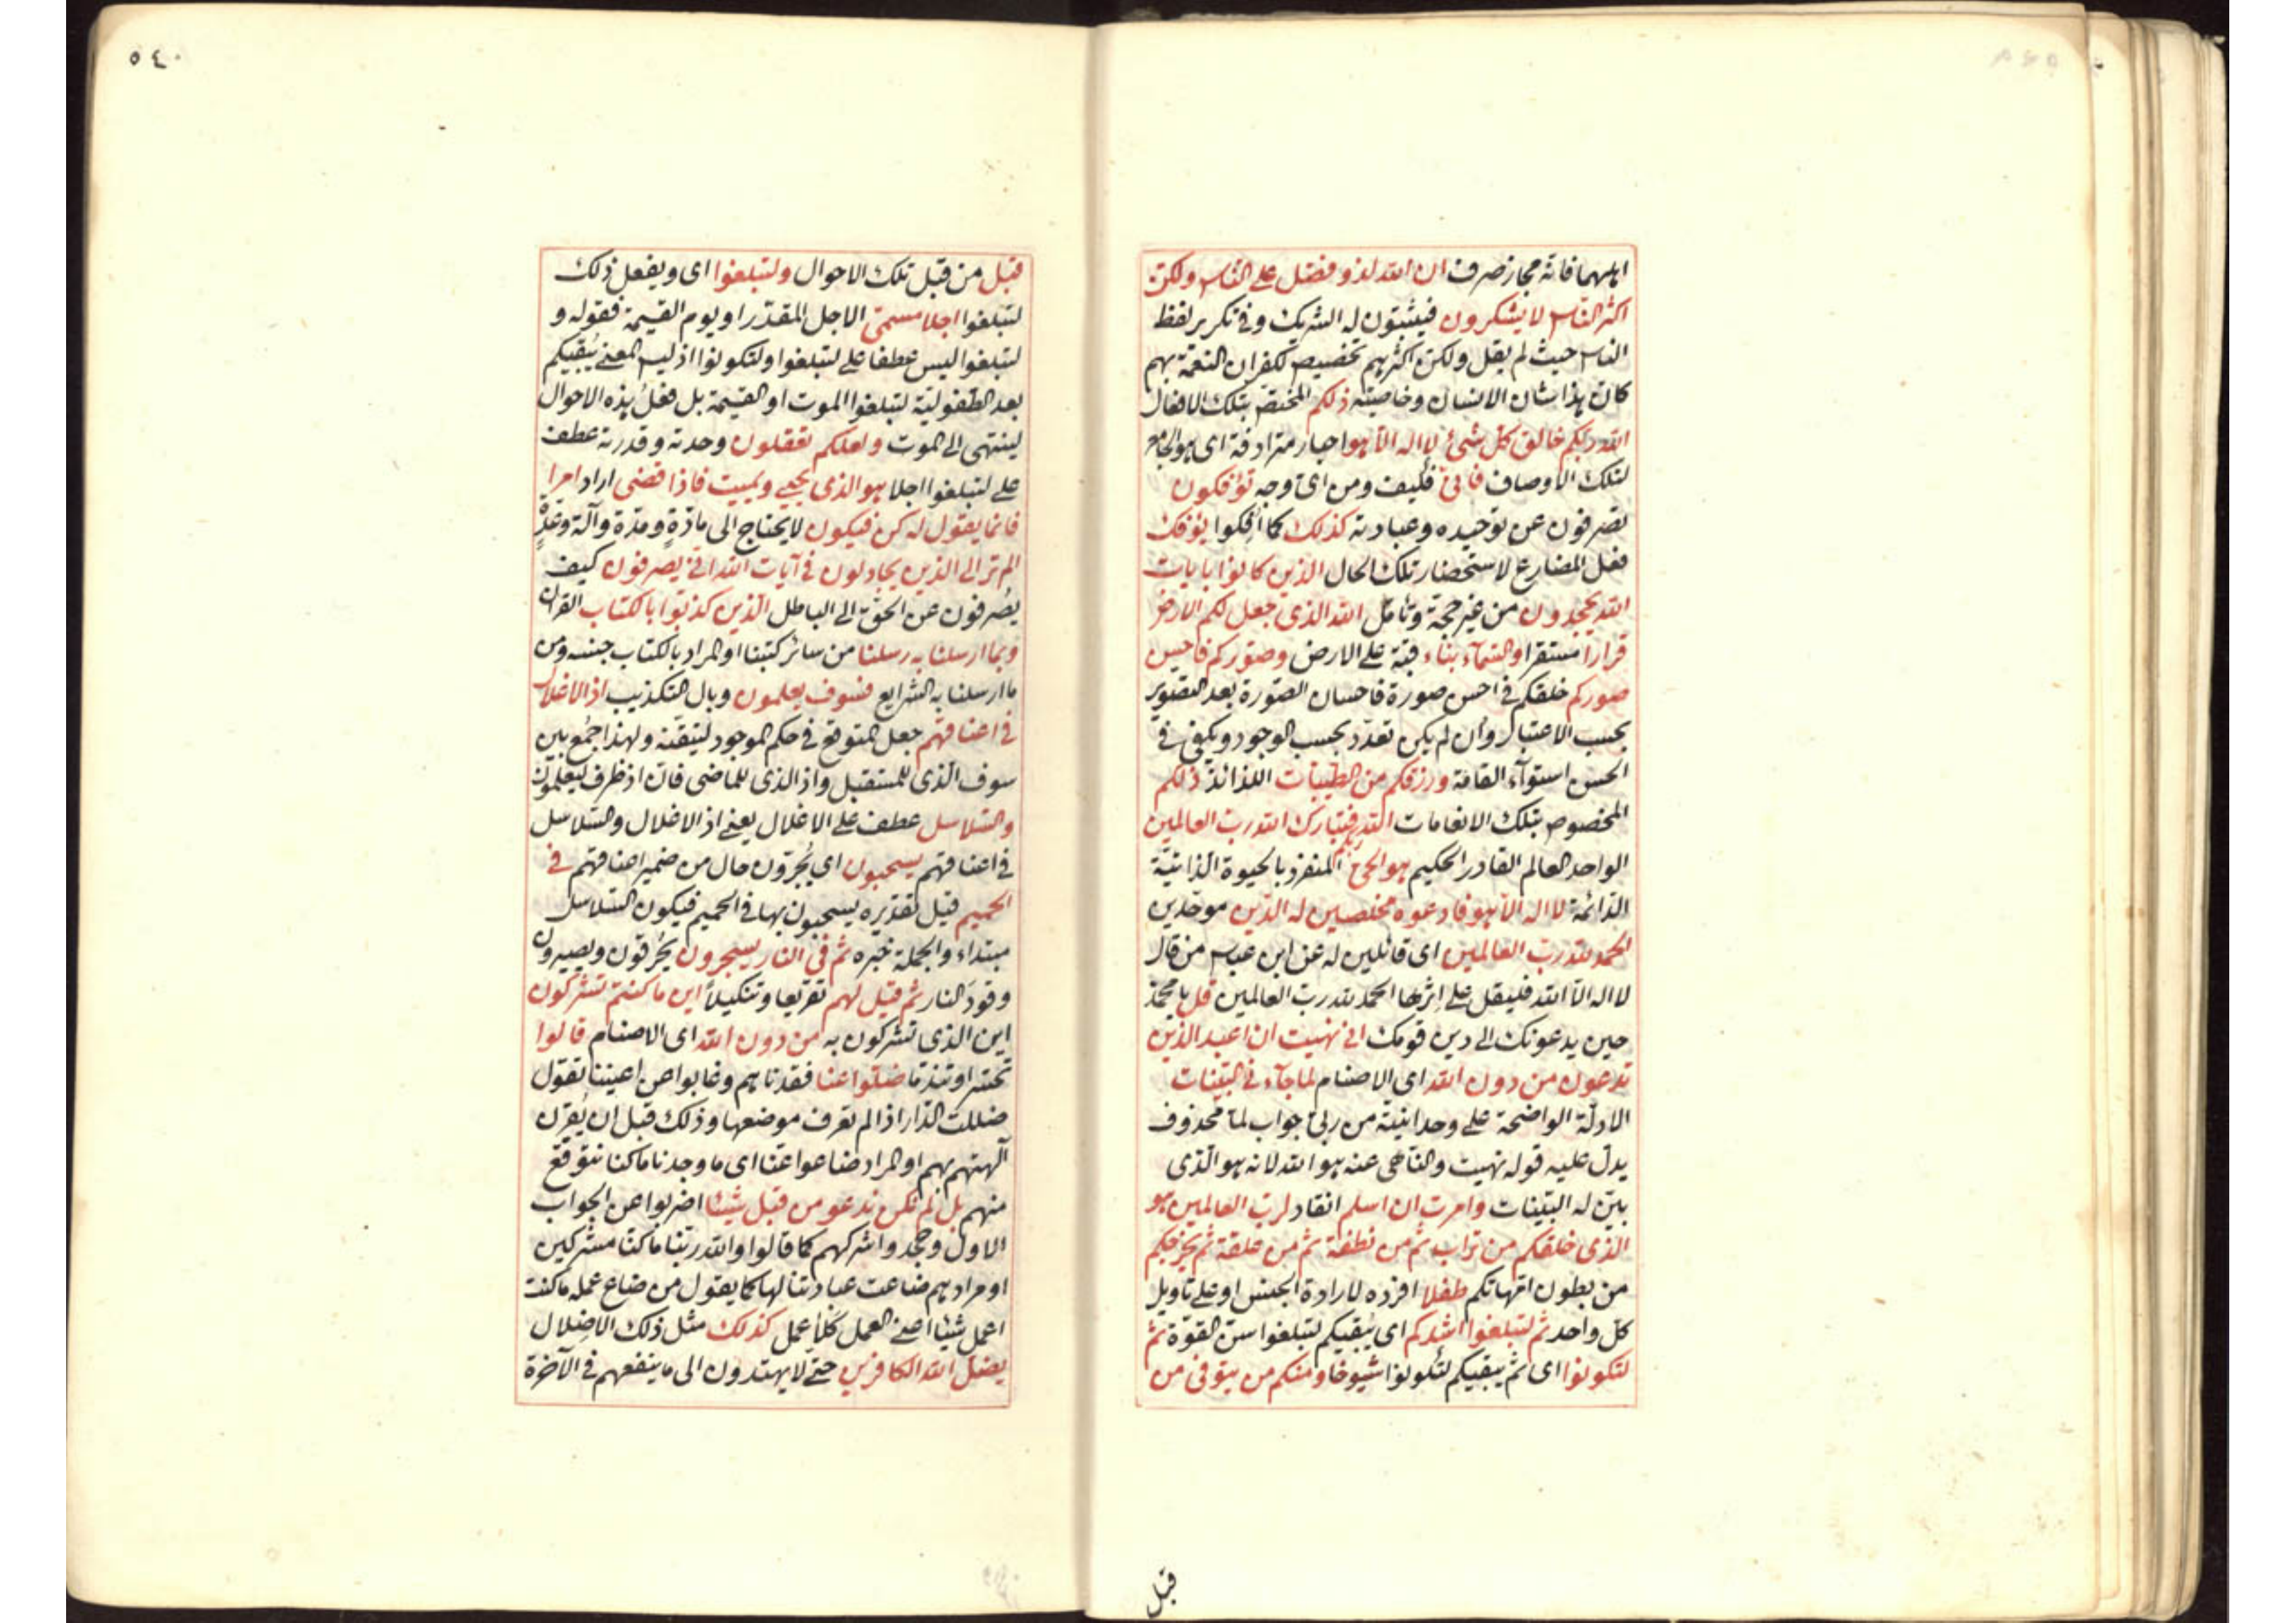 اهلهما فانه مجاز صرف ان الله لذو فضل على الناس ولكن
اكثر الناس لا يشكرون فيثبتون له الشريك وفى تكرير لفظ
الناس حيث لم يقل ولكن اكثرهم تخصيص لكفران النعمة بهم
كان هذا شان الانسان وخاصيته ذلكم المختص بتلك الافعال
الله ربكم خالق كل شئ لا اله الا هو اخبار مترادفة اى هو الجامع
لتلك الاوصاف فانى فكيف ومن اى وجه تؤفكون
تصرفون عن توحيده وعبادته كذلك كما افكوا يؤفك
فعل المضارع لاستحضار تلك الحال الذين كانوا بايات
الله يجحدون من غير حجة وتامل الله الذى جعل لكم الارض
قرارا مستقرا والسماء بناء قبة على الارض وصوركم فاحسن
صوركم خلقكم فى احسن صورة فاحسان الصورة بعد التصوير
بحسب الاعتبار وان لم يكن تعدد بحسب الوجود ويكفى فى
الحسن استوآء القامة ورزقكم من الطيبات اللذائذ ذلكم
المخصوص بتلك الانعامات الله ربكم فتبارك الله رب العالمين
الواحد العالم القادر الحكيم هو الحى المنفرد بالحيوة الذاتية
الدائمة لا اله الا هو فادعوه مخلصين له الدين موحدين
الحمد لله رب العالمين اى قائلين له عن ابن عباس من قال
لا اله الا الله فليقل على اثرها الحمد لله رب العالمين قل يا محمد
حين يدعونك الى دين قومك انى نهيت ان اعبد الذين
تدعون من دون الله اى الاصنام لما جآء نى البينات
الادلة الواضحة على وحدانيته من ربى جواب لما محذوف
يدل عليه قوله نهيت والناهى عنه هو الله لانه هو الذى
بين له البينات وامرت ان اسلم انقاد لرب العالمين هو
الذى خلقكم من تراب ثم من نطفة ثم من علقة ثم يخرجكم
من بطون امهاتكم طفلا افرده لارادة الجنس او على تاويل
كل واحد ثم لتبلغوا اشدكم اى يبقيكم لتبلغوا سن القوة ثم
لتكونوا اى ثم يبقيكم لتكونوا شيوخا ومنكم من يتوفى من
قبل
٥٤٠
قبل من قبل تلك الاحوال ولتبلغوا اى ويفعل ذلك
لتبلغوا اجلا مسمى الاجل المقدر او يوم القيمة فقوله و
لتبلغوا ليس عطفا على لتبلغوا ولتكونوا اذ ليس المعنى يبقيكم
بعد الطفولية لتبلغوا الموت او القيمة بل فعل هذه الاحوال
لينتهى الى الموت ولعلكم تعقلون وحدته وقدرته عطف
على لتبلغوا اجلا هو الذى يحيى ويميت فاذا قضى اراد امرا
فانما يقول له كن فيكون لا يحتاج الى مادة ومدة وآلة وعدة
الم تر الى الذين يجادلون فى آيات الله انى يصرفون كيف
يصرفون عن الحق الى الباطل الذين كذبوا بالكتاب القرآن
وبما ارسلنا به رسلنا من سائر كتبنا او المراد بالكتاب جنسه ومن
ما ارسلنا به الشرايع فسوف يعلمون وبال التكذيب اذ الاغلال
فى اعناقهم جعل المتوقع فى حكم الموجود لتيقنه ولهذا جمع بين
سوف الذى للمستقبل واذ الذى للماضى فان اذ ظرف ليعلمون
والسلاسل عطف على الاغلال يعنى اذ الاغلال والسلاسل
فى اعناقهم يسحبون اى يجرون حال من ضمير اعناقهم فى
الحميم قيل تقديره يسحبون بها فى الحميم فيكون السلاسل
مبتداء والجملة خبره ثم فى النار يسجرون يحرقون ويصيرون
وقود النار ثم قيل لهم تقريعا وتنكيلا اين ما كنتم تشركون
اين الذى تشركون به من دون الله اى الاصنام قالوا
تحسرا وتندما ضلوا عنا فقدناهم وغابوا عن اعيننا تقول
ضللت الدار اذا لم تعرف موضعها وذلك قبل ان يقرن
آلهتهم بهم او المراد ضاعوا عنا اى ما وجدنا ما كنا نتوقع
منهم بل لم نكن ندعو من قبل شيئا اضربوا عن الجواب
الاول وجحدوا شركهم كما قالوا والله ربنا ما كنا مشركين
او مرادهم ضاعت عبادتنا لها كما يقول من ضاع عمله ما كنت
اعمل شيئا اصنع العمل كلا عمل كذلك مثل ذلك الاضلال
يضل الله الكافرين حتى لا يهتدون الى ما ينفعهم فى الآخرة